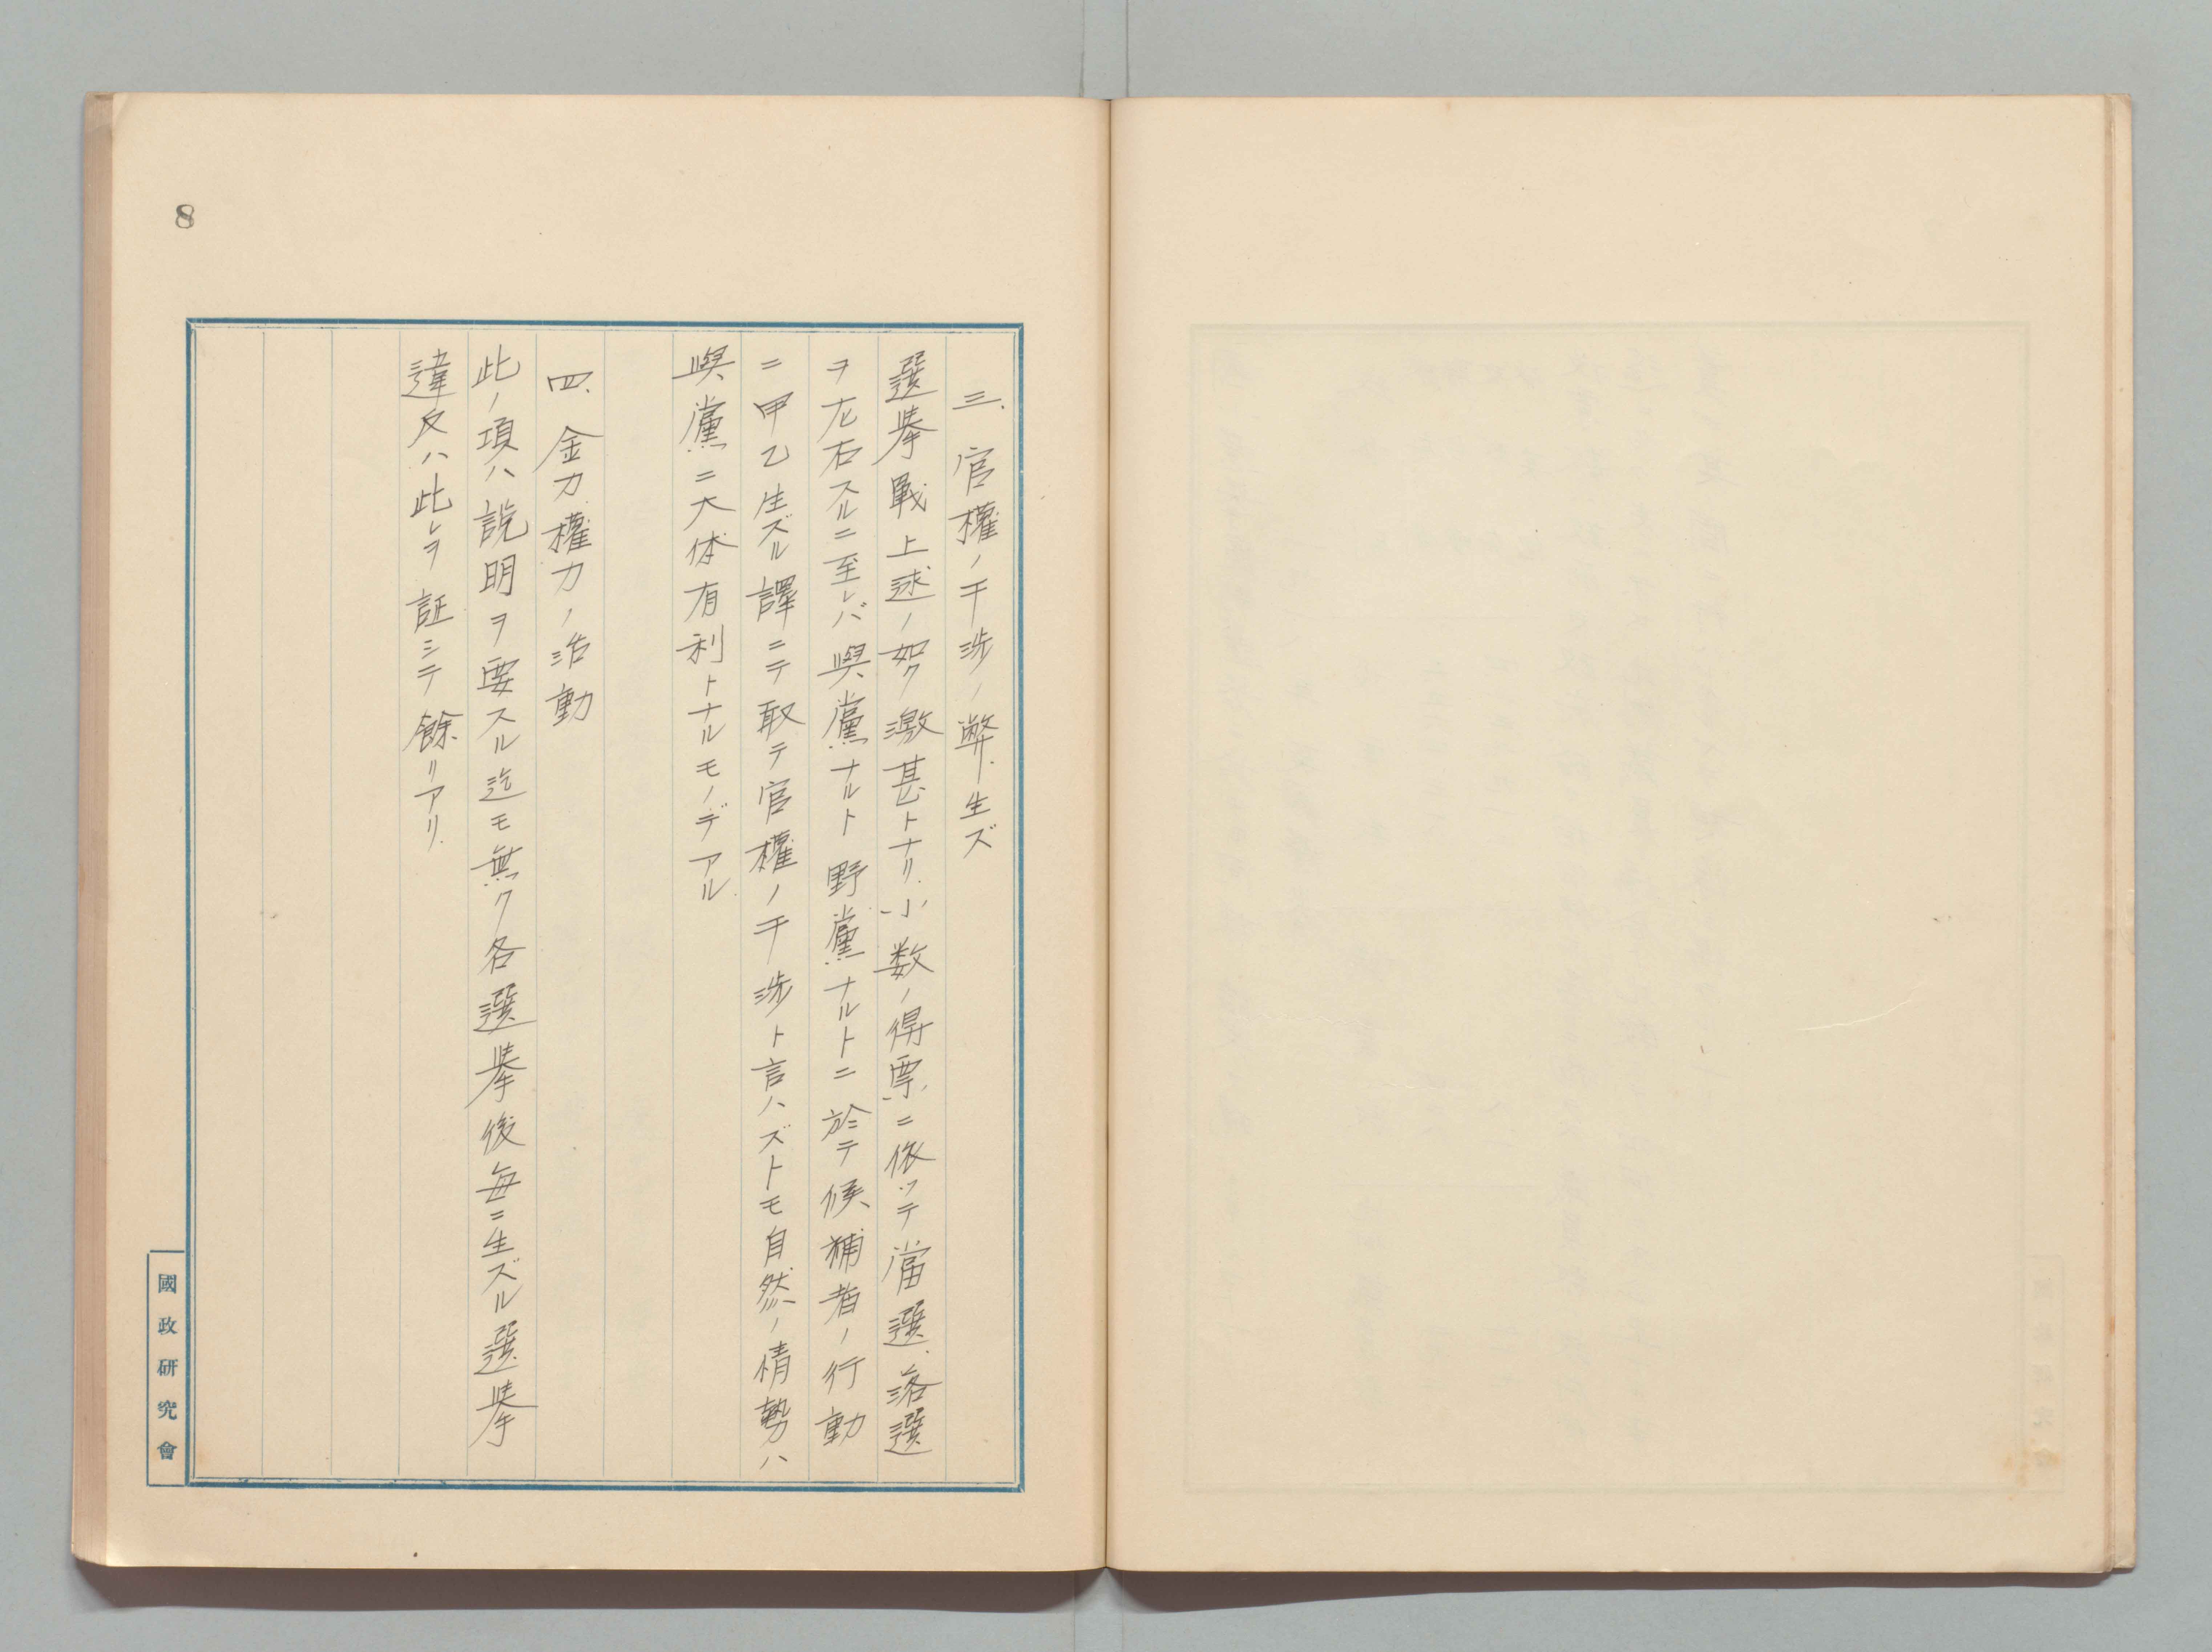 三、官權ノ干渉ノ弊生ズ
選擧戰上述ノ如ク激甚トナリ小数ノ得票ニ依ッテ當選、落選
ヲ左右スルニ至レバ與黨ナルト野黨ナルトニ於テ候補者ノ行動
ニ甲乙生ズル譯ニテ取テ官權ノ干渉ト言ハズトモ自然ノ情勢ハ
與黨ニ大体有利トナルモノデアル
四、金力權力ノ活動
此ノ項ハ説明ヲ要スル迄モ無ク各選擧後毎ニ生ズル選擧
違反ハ此レヲ証シテ餘リアリ
8
國政研究會